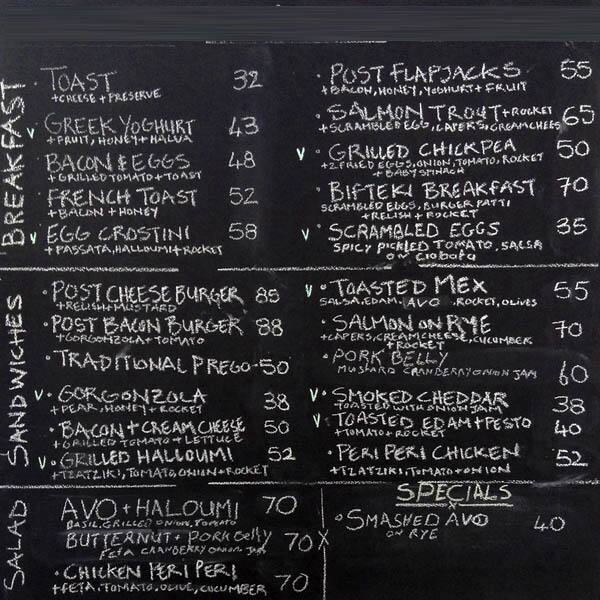 BREAKFAST
• TOAST 32
+CHEESE + PRESERVE
V • GREEK YOGHURT 43
+ FRUIT, HONEY + HALVA
BACON & EGGS 48
+ GRILLED TOMATO + TOAST
FRENCH TOAST 52
+ BACON + HONEY
V • EGG CROSTINI 58
+ PASSATA, HALLOUMI + ROCKET
• POST FLAPJACKS 55
+ BACON, HONEY, YOGHURT + FRUIT
• SALMON TROUT + ROCKET 65
+ SCRAMBLED EGGS, CAPERS, CREAMCHEESE
V • GRILLED CHICKPEA 50
+ 2 FRIED EGGS, ONION, TOMATO, ROCKET
+ BABY SPINACH
• BIFTEKI BREAKFAST 70
SCRAMBLED EGGS, BURGER PATTI
+ RELISH + ROCKET
V • SCRAMBLED EGGS 35
SPICY PICKLED TOMATO, SALSA
ON CIOBATA
SANDWICHES
• POST CHEESE BURGER 85
+ RELISH + MUSTARD
POST BACON BURGER 88
+ GORGONZOLA + TOMATO
• TRADITIONAL PREGO - 50
V • GORGONZOLA 38
+ PEAR, HONEY + ROCKET
• BACON + CREAM CHEESE 50
+ GRILLED TOMATO + LETTUCE
V • GRILLED HALLOUMI 52
+ TZATZIKI, TOMATO, ONION + ROCKET
V • TOASTED MEX 55
SALSA, EDAM, AVO, ROCKET, OLIVES
• SALMON ON RYE 70
+ CAPERS, CREAMCHEESE, CUCUMBER
+ ROCKET
• PORK BELLY 60
MUSTARD CRANBERRY ONION JAM
V • SMOKED CHEDDAR 38
TOASTED WITH ONION JAM
V TOASTED EDAM + PESTO 40
+ TOMATO + ROCKET
• PERI PERI CHICKEN 52
+ TZATZIKI, TOMATO + ONION
SALAD
AVO + HALOUMI 70
BASIL, GRILLED ONION, TOMATO
BUTTERNUT + PORK BELLY 70 X
FETA CRANBERRY ONION JAM
• CHICKEN PERI PERI 70
+ FETA, TOMATO, OLIVE, CUCUMBER
SPECIALS
• SMASHED AVO 40
ON RYE